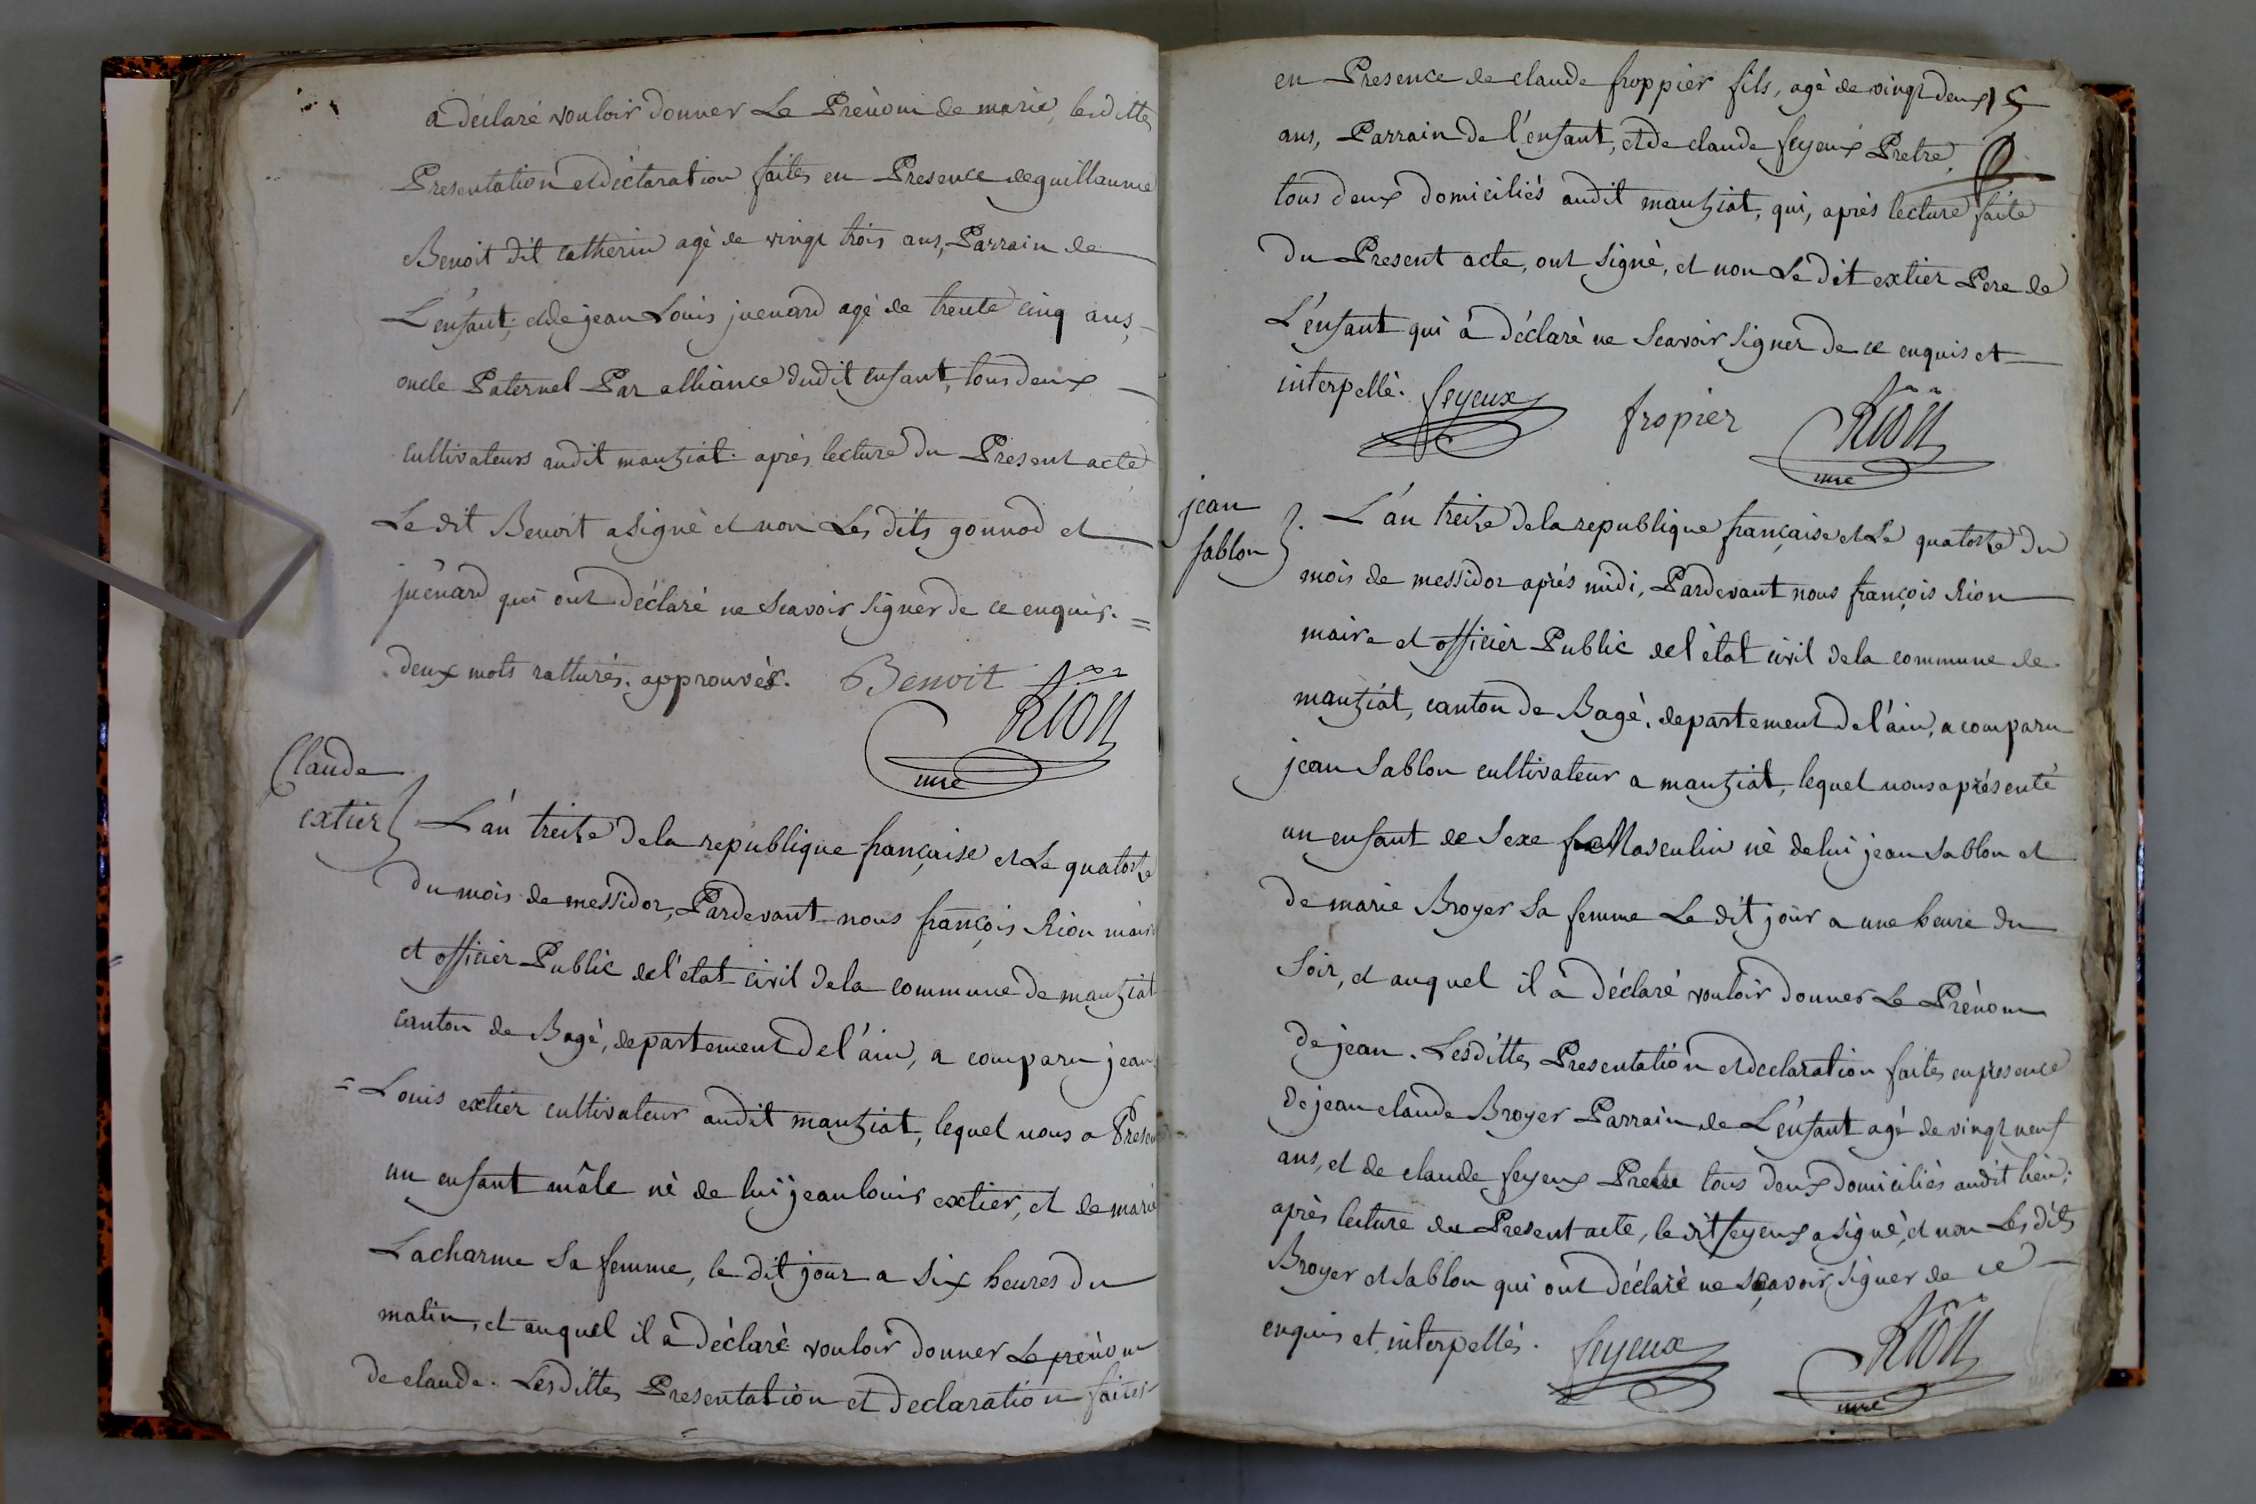 a déclaré vouloir donner Le Prènom de marie, lesdittes
Presentation et déclaration faites en Presence de guillaume
Benoit dit catherin agè de vingt trois ans, Parrain de
L'enfant, et de jean Louis juenard agè de trente cinq ans,
oncle Paternel Par alliance dudit enfant, tous deux
cultivateurs audit mantziat. après lecture du Present acte
Le dit Benoit a signè et non Les dits gonnod et
juenard qui ont déclaré ne Scavoir signer de ce enquis. =
deux mots ratturés. approuvès. Benoit
Rion
mre
Claude
extier
L'an treize de la republique française et Le quatorze
du mois de messidor, Pardevant nous françois Rion maire
et officier Public de l'etat civil de la commune de mantziat
canton de Bagé, departement de l'ain, a comparu jean
= Louis extier cultivateur audit mantziat, lequel nous a Presen
un enfant mâle nè de lui jean louis extier, et de marie
Lacharme Sa femme, le dit jour a six heures du
matin, et auquel il a déclaré vouloir donner Le prènom
de claude. Lesdittes Presentation et declaration faites
15
en Presence de claude froppier fils, agè de vingt deux
ans, Parrain de l'enfant, et de claude feyeux Pretre,
tous deux domiciliés audit mantziat, qui, après lecture faite
du Present acte, ont signè, et non Le dit extier Pere de
L'enfant qui à déclarè ne Scavoir signer de ce enquis et
interpellè. feyeux fropier Rion
mre
jean
sablon
L'an treize de la republique française et Le quatorze du
mois de messidor après midi, Pardevant nous françois Rion
maire et officier Public de l'ètat civil de la commune de
mantziat, canton de Bagè, departement de l'ain, a comparu
jean Sablon cultivateur a mantziat, lequel nous a présenté
un enfant de Sexe Masculin nè de lui jean Sablon et
de marie Broyer Sa femme Le dit jour a une heure du
Soir, et auquel il à déclaré vouloir donner Le Prènom
de jean. Lesdittes Presentation et declaration faites en presence
de jean claude Broyer Parrain de L'enfant agé de vingt neuf
ans, et de claude feyeux Pretre tous deux domiciliès audit lieu;
après lecture du Present acte, le dit feyeux a signè, et non Les dits
Broyer et Sablon qui ont déclaré ne Scavoir signer de ce
enquis et interpellés. feyeux Rion
mre